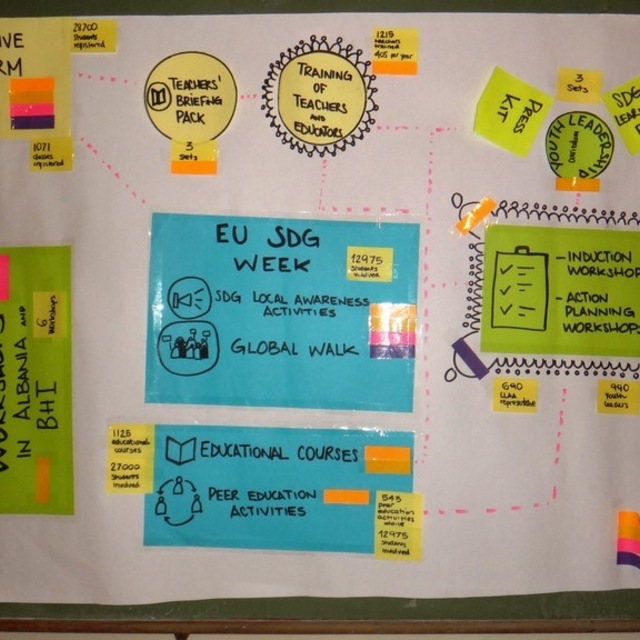 IVE
RM
28700
Students
registered
1071
classes
registered
TEACHERS'
BRIEFING
PACK
3
sets
TRAINING
OF
TEACHERS
AND
EDUCATORS
1215
teachers
trained
405 per year
PRESS
KIT
3
sets
SDG
LEAR
YOUTH LEADERSHIP
Curriculum
EU SDG
WEEK
12975
students
involved
SDG LOCAL AWARENESS
ACTIVITIES
GLOBAL WALK
- INDUCTION
WORKSHOP
- ACTION
PLANNING
WORKSHOPS
690
LLAA
representative
990
Youth
leaders
6
workshops
WORKSHOPS
IN ALBANIA AND
BHI
1125
educational
courses
27000
students
involved
EDUCATIONAL COURSES
PEER EDUCATION
ACTIVITIES
545
peer
education
activities
12975
students
involved